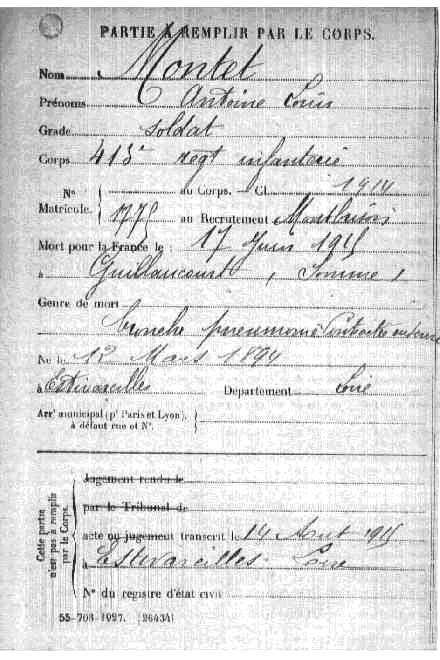 PARTIE À REMPLIR PAR LE CORPS.
Nom Montet
Prénoms Antoine Louis
Grade soldat
Corps 413e regt infanterie
No au Corps. — Cl. 1914
Matricule. 1775 au Recrutement Montbrison
Mort pour la France le : 17 Juin 1915
à Guillaucourt (Somme)
Genre de mort
broncho pneumonie Contractée en service
Né le 12 Mars 1894
à Estivareilles Département Loire
Arr' municipal (pr Paris et Lyon),
à défaut rue et No.
Cette partie
n'est pas à remplir
par le Corps.
Jugement rendu le
par le Tribunal de
acte ou jugement transcrit le 14 Aout 1915
à Estivareilles Loire
No du registre d'état civil
55-708-1927. [26434]